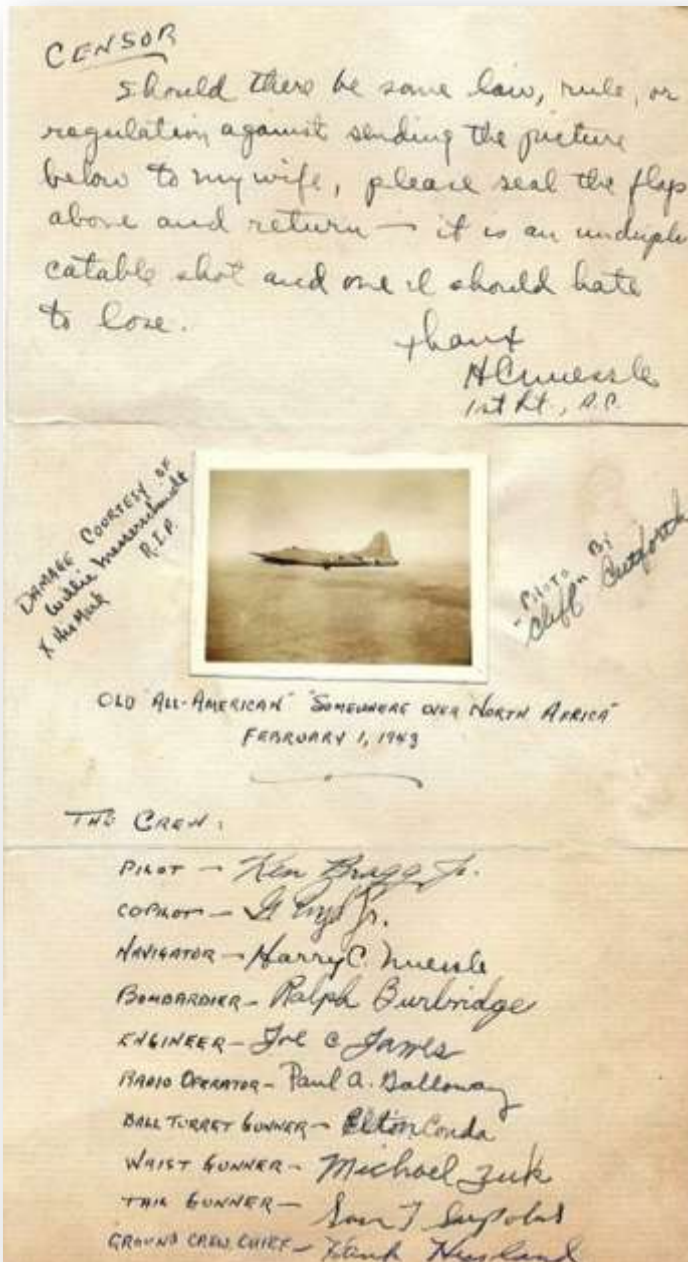 CENSOR
Should there be some law, rule, or
regulation against sending the picture
below to my wife, please seal the flaps
above and return — it is an undupli
catable shot and one I should hate
to lose.
Thanx
HCNuessle
1st Lt., A.C.
DAMAGE COURTESY OF
Willie Messerschmidt
R.I.P.
X His Mark
PHOTO BY
"Cliff" Cutforth
OLD "ALL-AMERICAN" "SOMEWHERE OVER NORTH AFRICA"
FEBRUARY 1, 1943
THE CREW:
PILOT — Ken Bragg Jr.
COPILOT — Jr.
NAVIGATOR — Harry C. Nuessle
BOMBARDIER — Ralph Burbridge
ENGINEER — Joe C James
RADIO OPERATOR — Paul A. Galloway
BALL TURRET GUNNER — Elton Conda
WAIST GUNNER — Michael Zuk
TAIL GUNNER — Sam T
GROUND CREW CHIEF — Hank Hyland